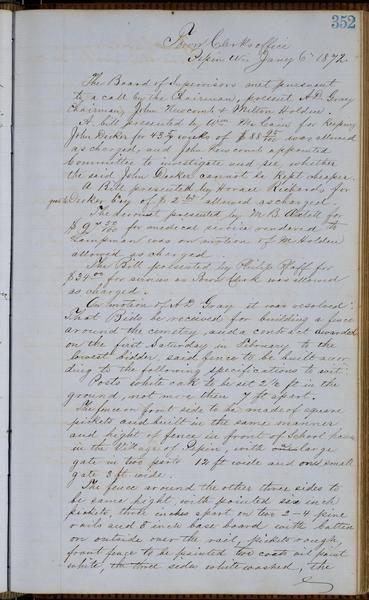 352
Town Clerks office
Pepin Wis. Jany 6th 1872.
The Board of Supervisors met pursuant
to a call by the Chairman, present A.D. Gray
Chairman, John Newcomb & Welton Holden.
A bill presented by Wm. McCain for Keeping
John Decker for 43 weeks of $88 was allowed
as charged, and John Newcomb appointed
Committee to investigate and see whether
the said John Decker cannot be kept cheaper.
A Bill presented by Horace Richards for
Decker boy of $2 allowed as charged.
The account presented by M.B. Axtell for
$9 50/100 for medical service rendered to
Lampman was on motion of M Holden
allowed as charged.
The Bill presented by Philip Pfaff for
$34 00 for services as Town Clerk was allowed
as charged.
On motion of A.D. Gray it was resolved:
That Bids be received for building a fence
around the cemetry and a contract awarded
on the first Saturday in February to the
lowest bidder, said fence to be built accor
ding to the following specifications to wit:
Posts white oak to be set 2½ ft in the
ground, not more then 7 ft apart.
The fence on front side to be made of square
pickets and built in the same manner
and hight of fence in front of School house
in the Village of Pepin, with one large
gate in two parts 12 ft wide and one small
gate 3 ft wide.
The fence around the other three sides to
be same hight, with pointed six inch
pickets, three inches apart on two 2-4 pine
rails and 8 inch base board with batten
on outside over the rail, pickets rough,
front fence to be painted two coats oil paint
white, the three sides whitewashed, the